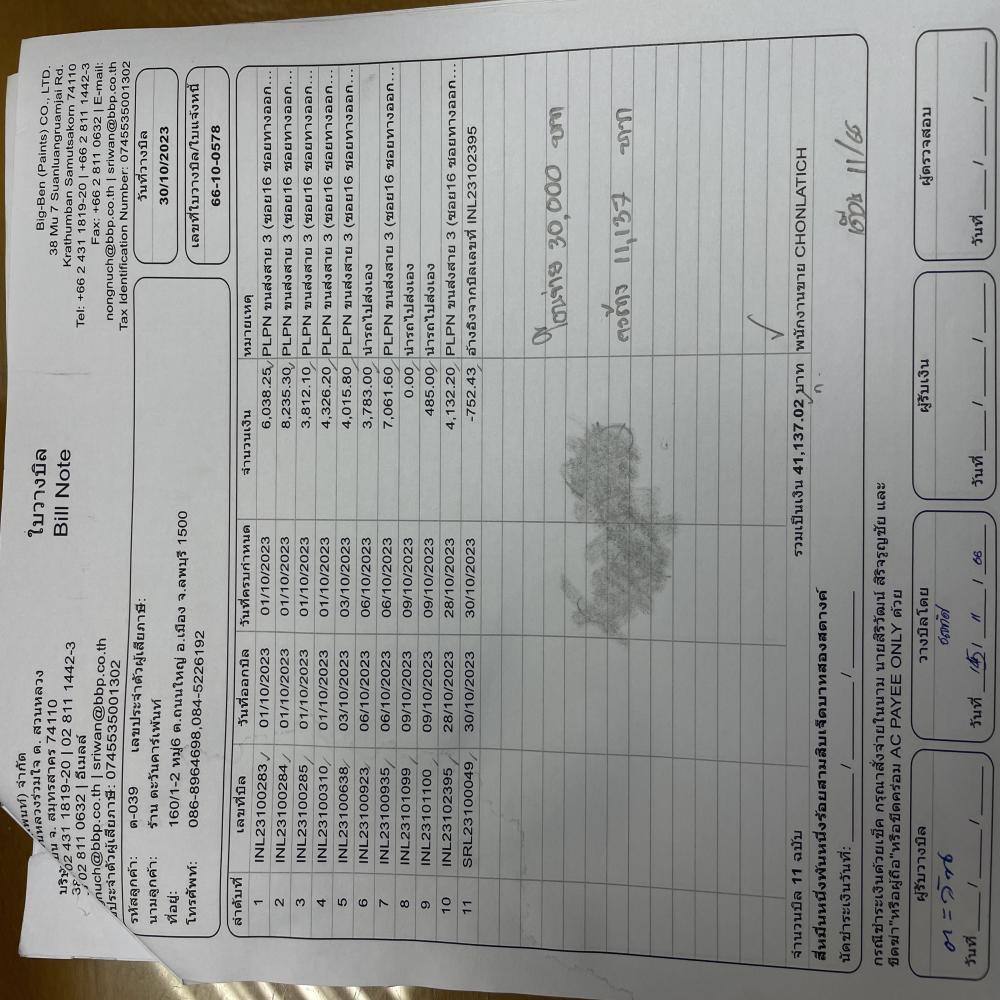 ใบวางบิล
Bill Note
บริษั
จำกัด
ต. สวนหลวง
จ. สมุทรสาคร 74110
02 431 1819-20 | 02 811 1442-3
02 811 0632 | อีเมลล์
nuch@bbp.co.th | sriwan@bbp.co.th
ประจำตัวผู้เสียภาษี: 0745535001302
Big-Ben (Paints) CO., LTD.
38 Mu 7 Suanluangruamjai Rd.
Krathumban Samutsakorn 74110
Tel: +66 2 431 1819-20 | +66 2 811 1442-3
Fax: +66 2 811 0632 | E-mail:
nongnuch@bbp.co.th | sriwan@bbp.co.th
Tax Identification Number: 0745535001302
รหัสลูกค้า: ต-039 เลขประจำตัวผู้เสียภาษี:
นามลูกค้า: ร้าน ตะวันคาร์เพ้นท์
ที่อยู่: 160/1-2 หมู่6 ต.ถนนใหญ่ อ.เมือง จ.ลพบุรี 1500
โทรศัพท์: 086-8964698,084-5226192
วันที่วางบิล
30/10/2023
เลขที่ใบวางบิล/ใบแจ้งหนี้
66-10-0578
ลำดับที่ เลขที่บิล วันที่ออกบิล วันที่ครบกำหนด จำนวนเงิน หมายเหตุ
1 INL23100283 01/10/2023 01/10/2023 6,038.25 PLPN ขนส่งสาย 3 (ซอย16 ซอยทางออก...
2 INL23100284 01/10/2023 01/10/2023 8,235.30 PLPN ขนส่งสาย 3 (ซอย16 ซอยทางออก...
3 INL23100285 01/10/2023 01/10/2023 3,812.10 PLPN ขนส่งสาย 3 (ซอย16 ซอยทางออก...
4 INL23100310 01/10/2023 01/10/2023 4,326.20 PLPN ขนส่งสาย 3 (ซอย16 ซอยทางออก...
5 INL23100638 03/10/2023 03/10/2023 4,015.80 PLPN ขนส่งสาย 3 (ซอย16 ซอยทางออก...
6 INL23100923 06/10/2023 06/10/2023 3,783.00 นำรถไปส่งเอง
7 INL23100935 06/10/2023 06/10/2023 7,061.60 PLPN ขนส่งสาย 3 (ซอย16 ซอยทางออก...
8 INL23101099 09/10/2023 09/10/2023 0.00 นำรถไปส่งเอง
9 INL23101100 09/10/2023 09/10/2023 485.00 นำรถไปส่งเอง
10 INL23102395 28/10/2023 28/10/2023 4,132.20 PLPN ขนส่งสาย 3 (ซอย16 ซอยทางออก...
11 SRL23100049 30/10/2023 30/10/2023 -752.43 อ้างอิงจากบิลเลขที่ INL23102395
30,000 บาท
11,137 บาท
จำนวนบิล 11 ฉบับ รวมเป็นเงิน 41,137.02 บาท พนักงานขาย CHONLATICH
สี่หมื่นหนึ่งพันหนึ่งร้อยสามสิบเจ็ดบาทสองสตางค์
11/66
นัดชำระเงินวันที่: / /
กรณีชำระเงินด้วยเช็ค กรุณาสั่งจ่ายในนาม นายสิริวัฒน์ สิริจรูญชัย และ
ขีดฆ่า"หรือผู้ถือ"หรือขีดคร่อม AC PAYEE ONLY ด้วย
ผู้รับวางบิล วางบิลโดย ผู้รับเงิน ผู้ตรวจสอบ
วันที่ / / วันที่ / 11 / 66 วันที่ / / วันที่ / /